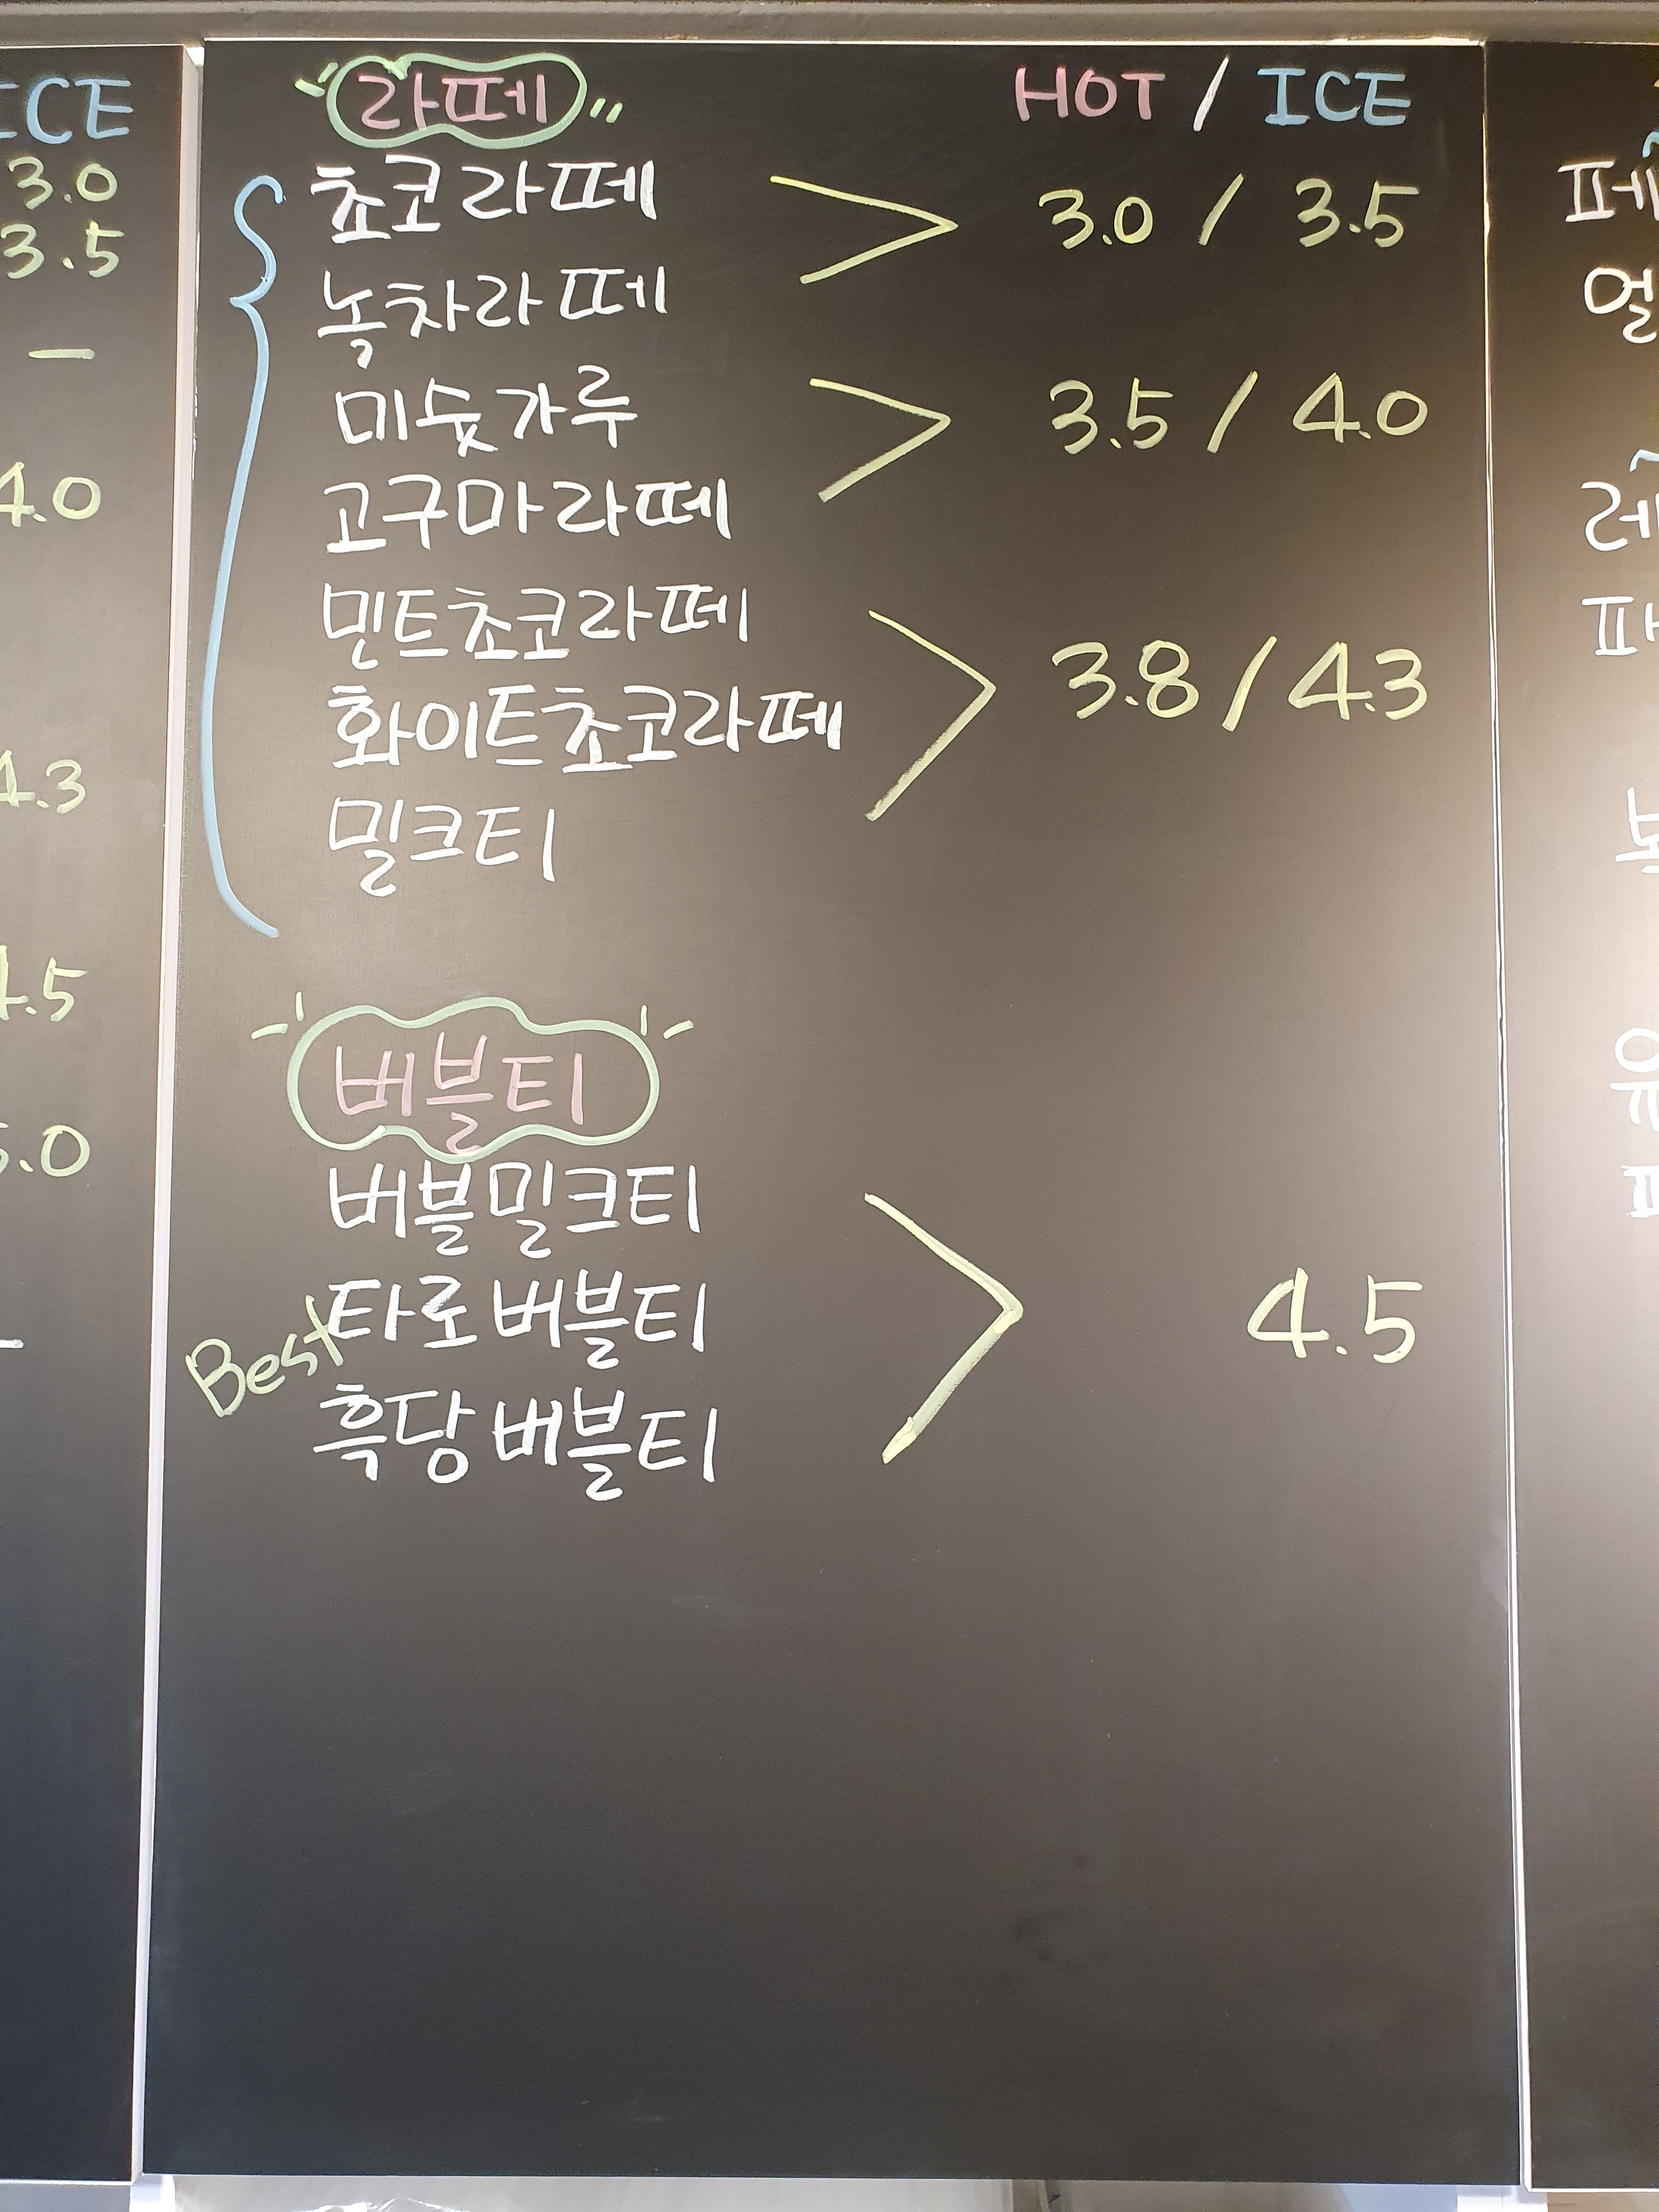 ICE
3.0
3.5
—
4.0
4.3
4.5
5.0
라떼 HOT / ICE
초코라떼
녹차라떼
3.0 / 3.5
미숫가루
고구마라떼
3.5 / 4.0
민트초코라떼
화이트초코라떼
밀크티
3.8 / 4.3
버블티
버블밀크티
타로버블티
Best
흑당버블티
4.5
페
얼
레
유